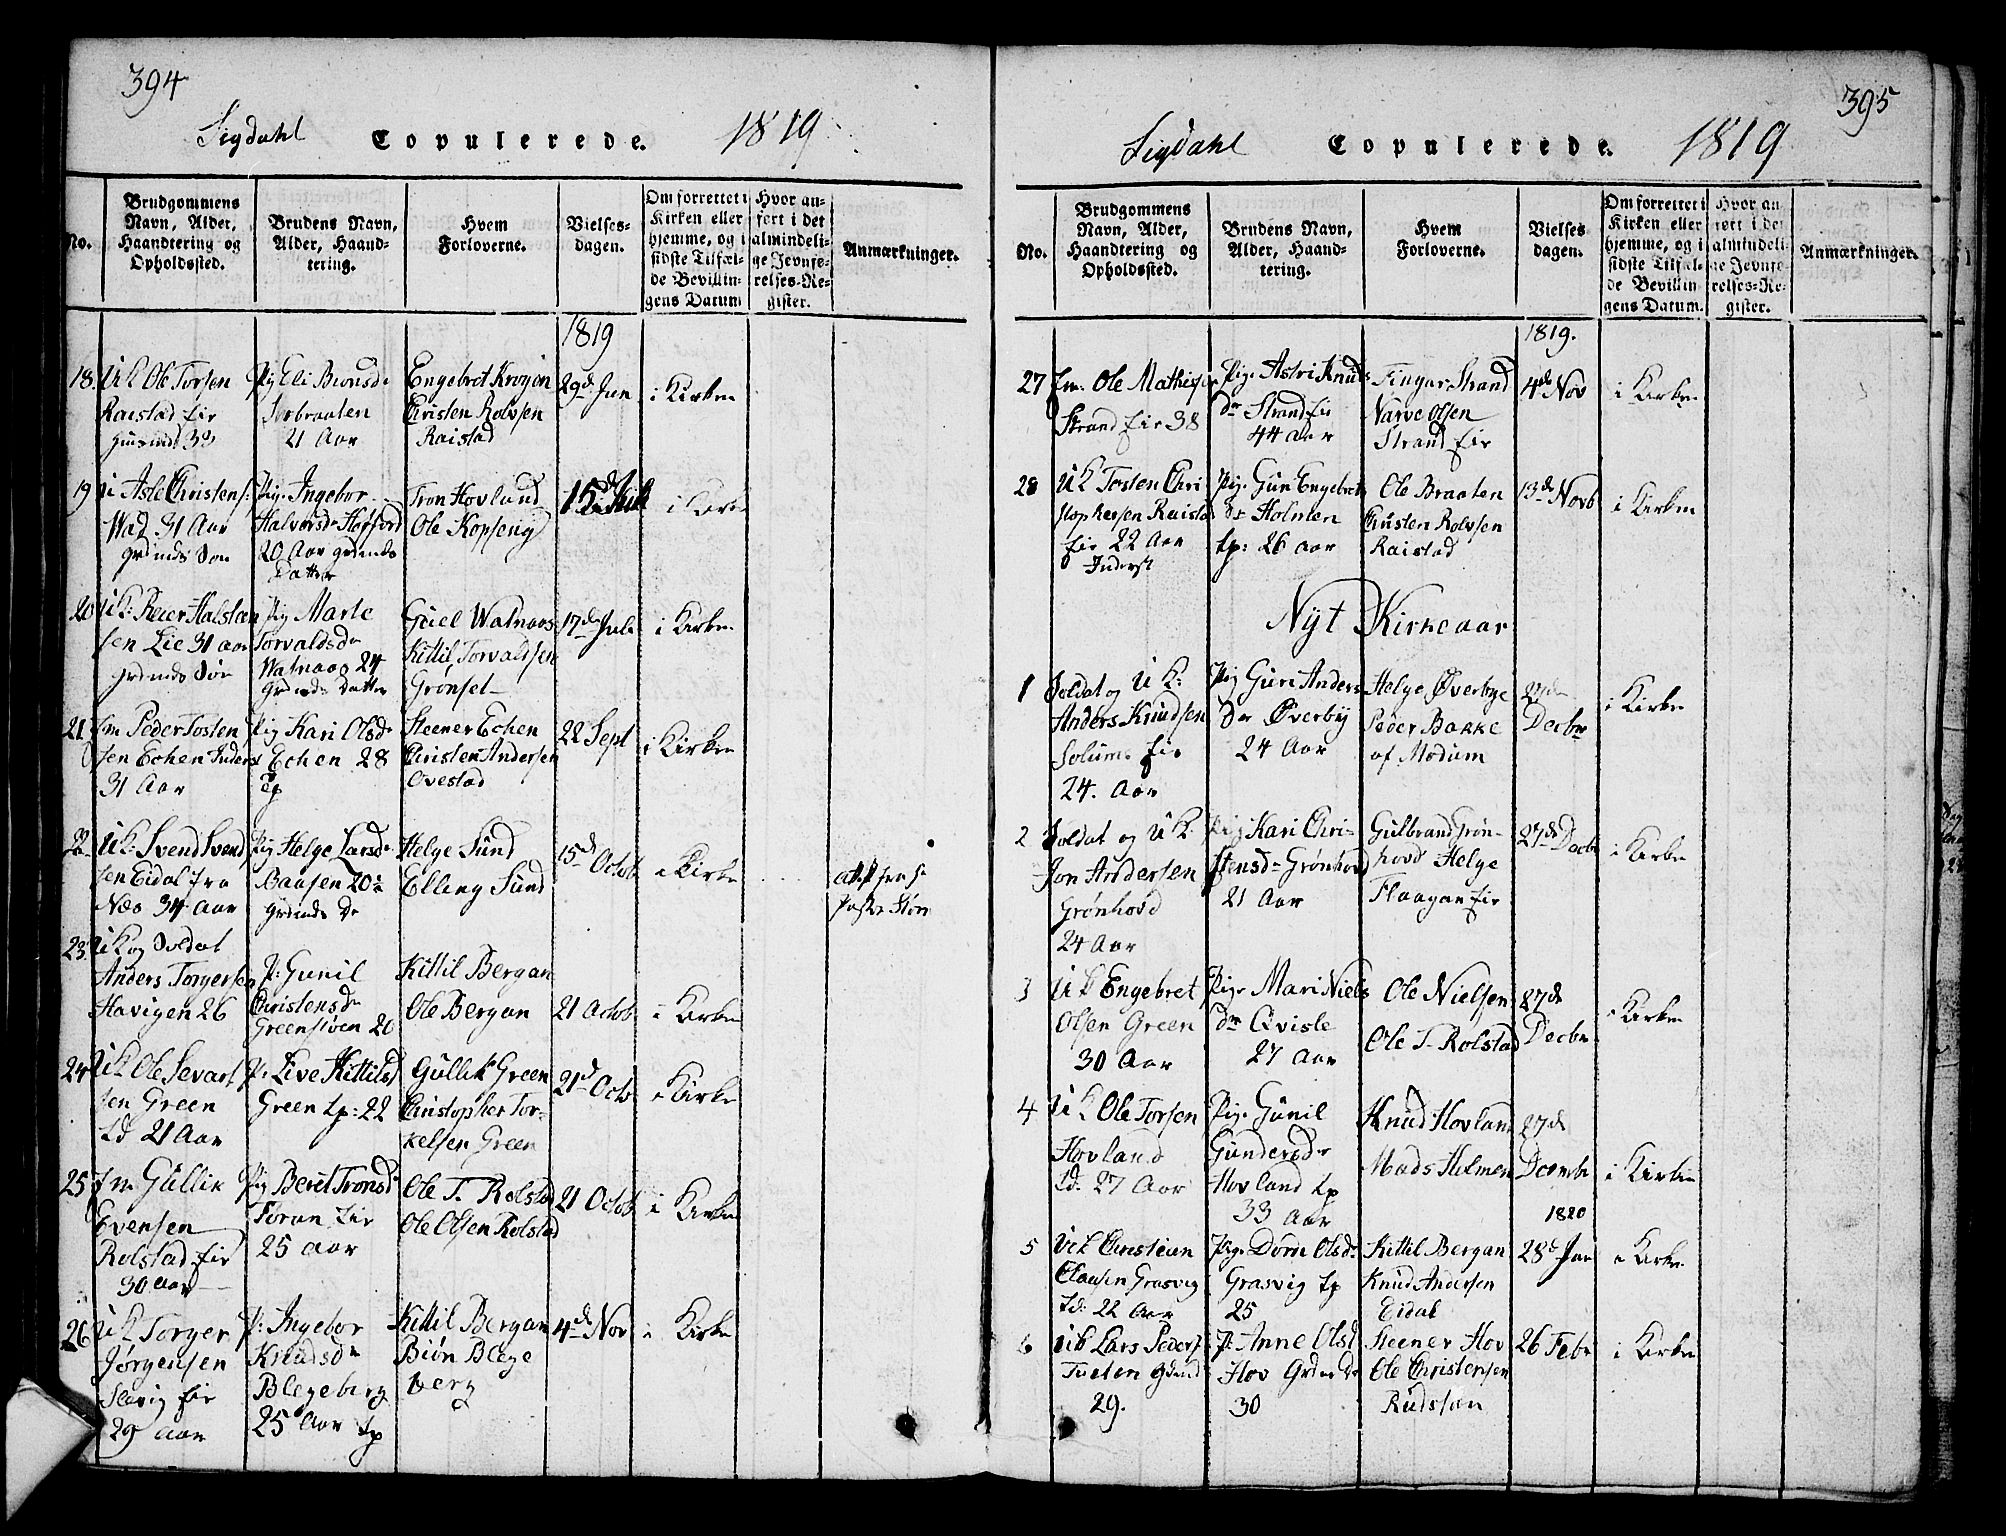 394
Sigdahl Copulerede. 1819
No.
Brudgommens Navn, Alder, Haandtering og Opholdssted.
Brudens Navn, Alder, Haandtering.
Hvem Forloverne.
Vielsesdagen.
Om forrettet i Kirken eller hjemme, og i sidste Tilfælde Bevillingens Datum
Hvor anført i det almindelige Jevnførelses-Register.
Anmærkninger.
1819
18. U K Ole Torsen
Raistad Eie
39
Pig Eli
21 Aar
Engebret
Christen Rolvsen
Raistad
29de Jun
i Kirken
19 Asle Christens:
Wad 31 Aar
Grdmds Søn
Pig. Ingebor
Halvorsdr
20 Aar grdmds
Datter
Tron Hovlund
Ole Kopseng
15de Juli
i Kirke
20 U K: Reier Halsten
sen Lie 31 aar
grdmds Søn
Pig Marte
Torvaldsdr
Watnaas 24
Grdmds Datter
Watnaas
Kittil Torvaldsen
Grønset
17de Juli
i Kirken
21. Peder Tosten
sen Echen Inderst
31 Aar
Pig Kari Olsdr
Echen 28
Lp
Steener Echen
Christen Andersen
Ovestad
22 Sept
i Kirken
22 U K: Svend Svend
sen Eidal fra
Næs 34 Aar
Pig Helge Larsdr
Baasen 20
Grdmds Dr
Helge Sund
Elling Sund
15de Octob
i Kirke
23. U K og Soldat
Anders Torgersen
Havigen 26
P. Gunil
Christensdr
Greensløen 20
Kittil Bergan
Ole Bergan
21 Octob
i Kirken
24 U K Ole Sevart
sen Green
Ld 21 Aar
P. Live Kittilsd
Green Lp: 22
Gullik Green
Christopher Tor-
kelsen Green
21d Octo
i Kirke
25 Gullik
Evensen
Rolstad Eie
30 Aar
Pig Beret Tronsdr
Toran Eie
25 aar
Ole T. Rolstad
Ole Olsen Rolstad
21 Octob
i Kirken
26 U K Torger
Jørgensen
Slevig Eie
29 aar
P: Ingebor
Knudsdr
Blegeberg
25 Aar Lp
Kittil Bergan
Biøn Blege
berg
4de Nov
i Kirke
395
Sigdahl Copulerede. 1819
No.
Brudgommens Navn, Alder, Haandtering og Opholdssted.
Brudens Navn, Alder, Haandtering.
Hvem Forloverne.
Vielsesdagen.
Om forrettet i Kirken eller hjemme, og i sidste Tilfælde Bevillingens Datum.
Hvor anført i det almindelige Jevnførelses-Register.
Anmærkninger.
1819.
27 Ole Mathis
Strand Eie 38
Pig. Astri Knuds
dr Strand Eie
44 Aar
Fingar Strand
Narve Olsen
Strand Eie
4de Nov
i Kirken
28 U K Tosten Chri
stophersen Raistad
Eie 22 Aar
Inderst
Pig. Guri Engebrets
dr Holmen
Lp: 26 aar
Ole Braaten
Christen Rolvsen
Raistad
13de Novb
i Kirken
Nyt Kirkeaar
1 Soldat og U K:
Anders Knudsen
Solum Eie
24. Aar
Pig Guri Anders
Dr Øverby
24 Aar
Helge Øverbye
Peder Bakke
af Modum
27de
Decbr
i Kirken
2 Soldat og U K.
Jon Andersen
Grønhovd
24 Aar
Pig Kari Chri-
stensdr Grønhovd
21 Aar
Gulbrand Grøn-
hovd Helge
Flaagan Eie
27de Decbr
i Kirken
3 U K Engebret
Olsen Green
30 Aar
Pig. Mari Niels
dr Qvisle
27 Aar
Ole Nielsen
Ole T. Rolstad
27de
Decbr
i Kirken
4 U K Ole Torsen
Hovland
Ld. 27 Aar
Pig. Gunil
Gundersdr
Hovland Lp
33 Aar
Knud Hovland
Mads Holmen
27de
Decembr
i Kirken
1820
5 U K Christian
Clausen Grasvig
Ld: 22 Aar
Pig. Dorte Olsdr
Grasvig Lp
25
Kittil Bergan
Knud Andersen
Eidal
28d Jan
i Kirken
6 U K Lars Peders
29.
P: Anne Olsd
Hov Grdm Dr
30
Steener Hov
Ole Christensen
26 Febr
i Kirken